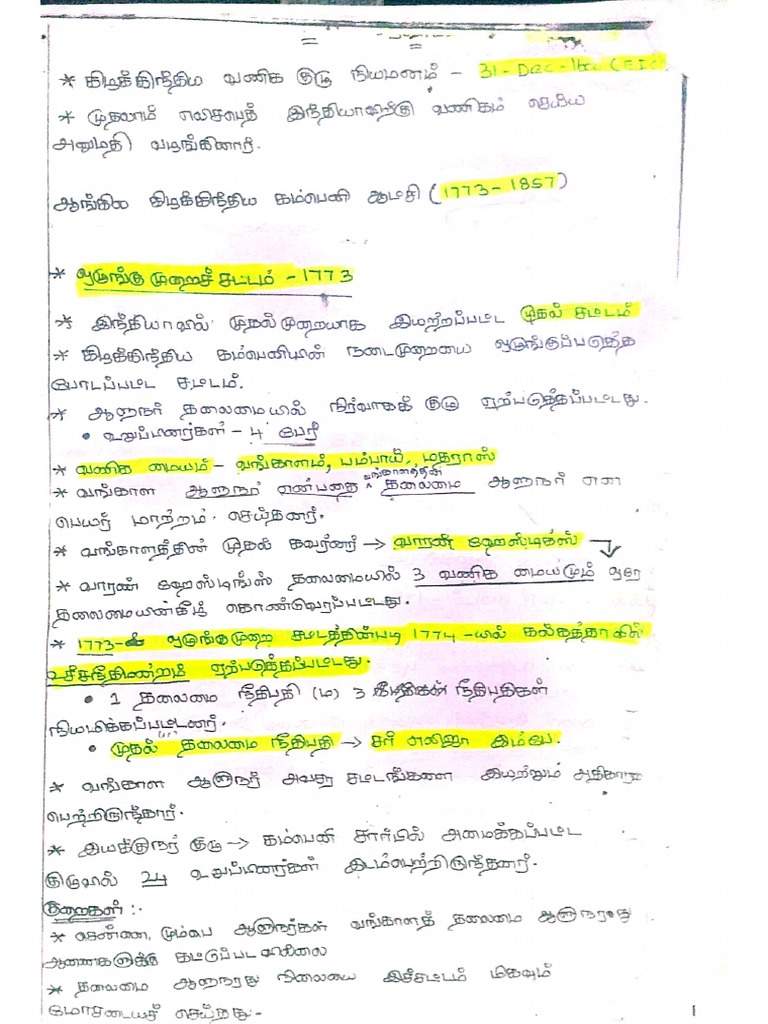 * கிழக்கிந்திய வணிக குழு நியமனம் - 31-Dec-1600 (EIC).
* முதலாம் எலிசபெத் இந்தியாவிற்கு வணிகம் செய்ய
அனுமதி வழங்கினார்.
ஆங்கில கிழக்கிந்திய கம்பெனி ஆட்சி (1773-1857)
* ஒழுங்குமுறைச் சட்டம் - 1773
* இந்தியாவில் முதல்முறையாக இயற்றப்பட்ட முதல் சட்டம்
* கிழக்கிந்திய கம்பெனியின் நடைமுறையை ஒழுங்குப்படுத்த
போடப்பட்ட சட்டம்.
* ஆளுநர் தலைமையில் நிர்வாகக் குழு ஏற்படுத்தப்பட்டது.
• உறுப்பினர்கள் - 4 பேர்
* வணிக மையம் - வங்காளம், பம்பாய், மதராஸ்
* வங்காள ஆளுநர் என்பதை வங்காளத்தின் தலைமை ஆளுநர் என
பெயர் மாற்றம் செய்தனர்.
* வங்காளத்தின் முதல் கவர்னர் → வாரன் ஹேஸ்டிங்ஸ்
* வாரன் ஹேஸ்டிங்ஸ் தலைமையில் 3 வணிக மையமும் ஒரே
தலைமையின்கீழ் கொண்டுவரப்பட்டது.
* 1773- ஒழுங்குமுறை சட்டத்தின்படி 1774 -யில் கல்கத்தாவில்
உச்சநீதிமன்றம் ஏற்படுத்தப்பட்டது.
• 1 தலைமை நீதிபதி (ம) 3 நீதிபதிகள்
நியமிக்கப்பட்டனர்.
• முதல் தலைமை நீதிபதி → சர் எலிஜா இம்பே.
* வங்காள ஆளுநர் அவசர சட்டங்களை இயற்றும் அதிகாரம்
பெற்றிருந்தார்.
* இயக்குநர் குழு → கம்பெனி சார்பில் அமைக்கப்பட்ட
குழுவில் 24 உறுப்பினர்கள் இடம்பெற்றிருந்தனர்.
குறைகள் :-
* சென்னை, மும்பை ஆளுநர்கள் வங்காளத் தலைமை ஆளுநரது
ஆணைகளுக்கு கட்டுப்படவில்லை
* தலைமை ஆளுநரது நிலையை இச்சட்டம் மிகவும்
மோசடையச் செய்தது.
1